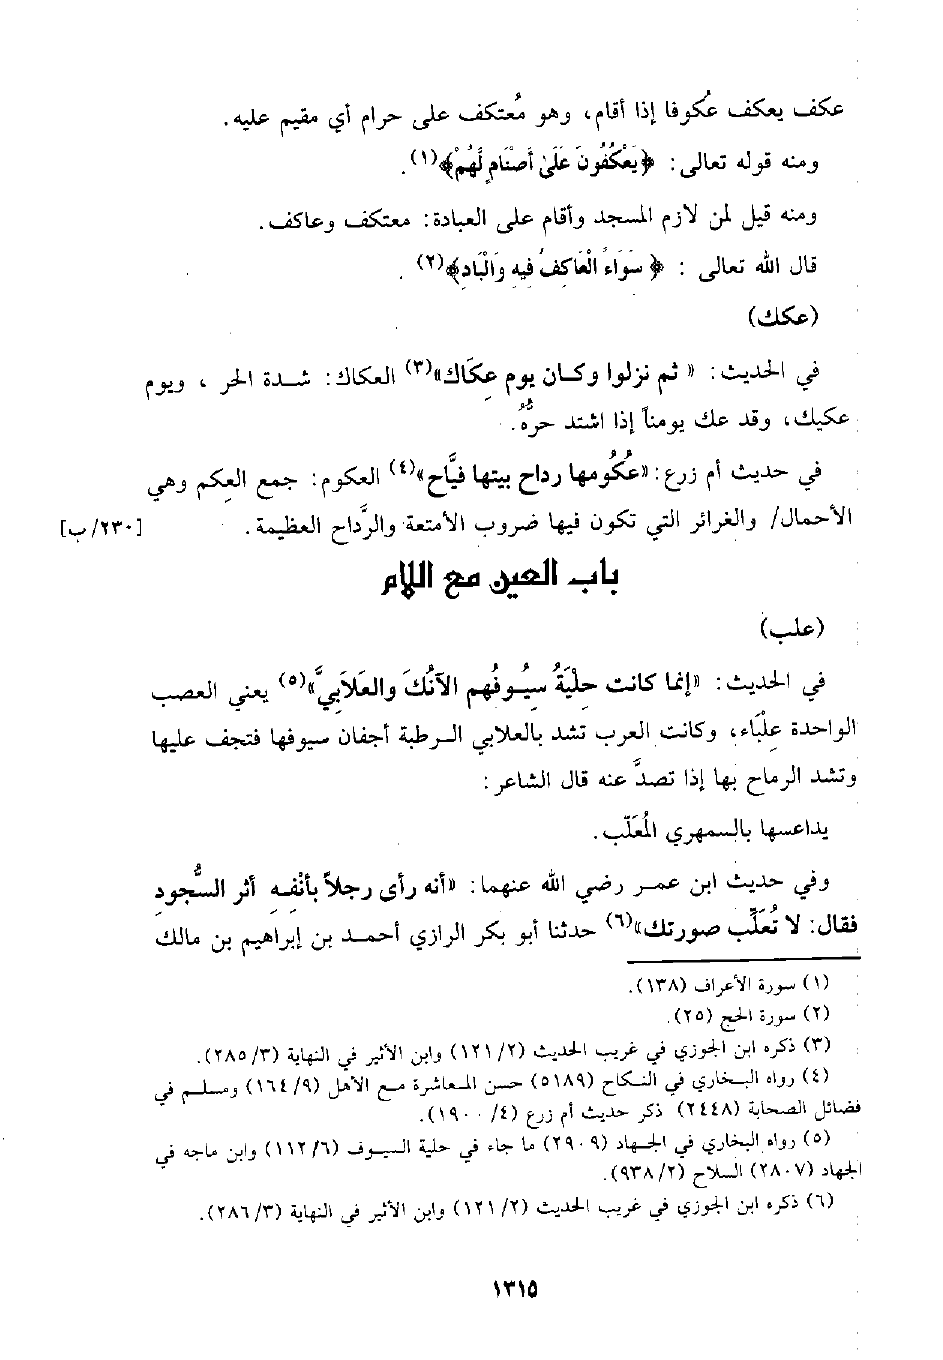 عكف يعكف عُكوفا إذا أقام، وهو مُعتكف على حرام أي مقيم عليه.
ومنه قوله تعالى: ﴿يَعْكُفُونَ عَلَىٰ أَصْنَامٍ لَّهُمْ﴾(١).
ومنه قيل لمن لازم المسجد وأقام على العبادة: معتكف وعاكف.
قال الله تعالى : ﴿ سَوَاءً الْعَاكِفُ فِيهِ وَالْبَادِ﴾(٢) .
(عكك)
في الحديث: « ثم نزلوا وكان يوم عِكَاك»(٣) العكاك: شدة الحر ، ويوم
عكيك، وقد عك يومناً إذا اشتد حرُّهُ.
في حديث أم زرع: «عُكُومها رداح بيتها فيَّاح»(٤) العكوم: جمع العِكم وهي
الأحمال/ والغرائر التي تكون فيها ضروب الأمتعة والرَّداح العظيمة. [٢٣٠/ب]
باب العين مع اللام
(علب)
في الحديث: «إنما كانت حِلْيَةُ سيُوفُهم الآنُكَ والعَلاَبيَّ»(٥) يعني العصب
الواحدة عِلْبَاء، وكانت العرب تشد بالعلابي الرطبة أجفان سيوفها فتجف عليها
وتشد الرماح بها إذا تصدَّ عنه قال الشاعر :
يداعسها بالسمهري المُعَلّب.
وفي حديث ابن عمر رضي الله عنهما: «أنه رأى رجلاً بأنْفِهِ أثر السُّجودِ
فقال: لا تُعَلِّب صورتك»(٦) حدثنا أبو بكر الرازي أحمد بن إبراهيم بن مالك
(١) سورة الأعراف (١٣٨).
(٢) سورة الحج (٢٥).
(٣) ذكره ابن الجوزي في غريب الحديث (١٢١/٢) وابن الأثير في النهاية (٢٨٥/٣).
(٤) رواه البخاري في النكاح (٥١٨٩) حسن المعاشرة مع الأهل (١٦٤/٩) ومسلم في
فضائل الصحابة (٢٤٤٨) ذكر حديث أم زرع (١٩٠٠/٤).
(٥) رواه البخاري في الجهاد (٢٩٠٩) ما جاء في حلية السيوف (١١٢/٦) وابن ماجه في
الجهاد (٢٨٠٧) السلاح (٩٣٨/٢).
(٦) ذكره ابن الجوزي في غريب الحديث (١٢١/٢) وابن الأثير في النهاية (٢٨٦/٣).
١٣١٥